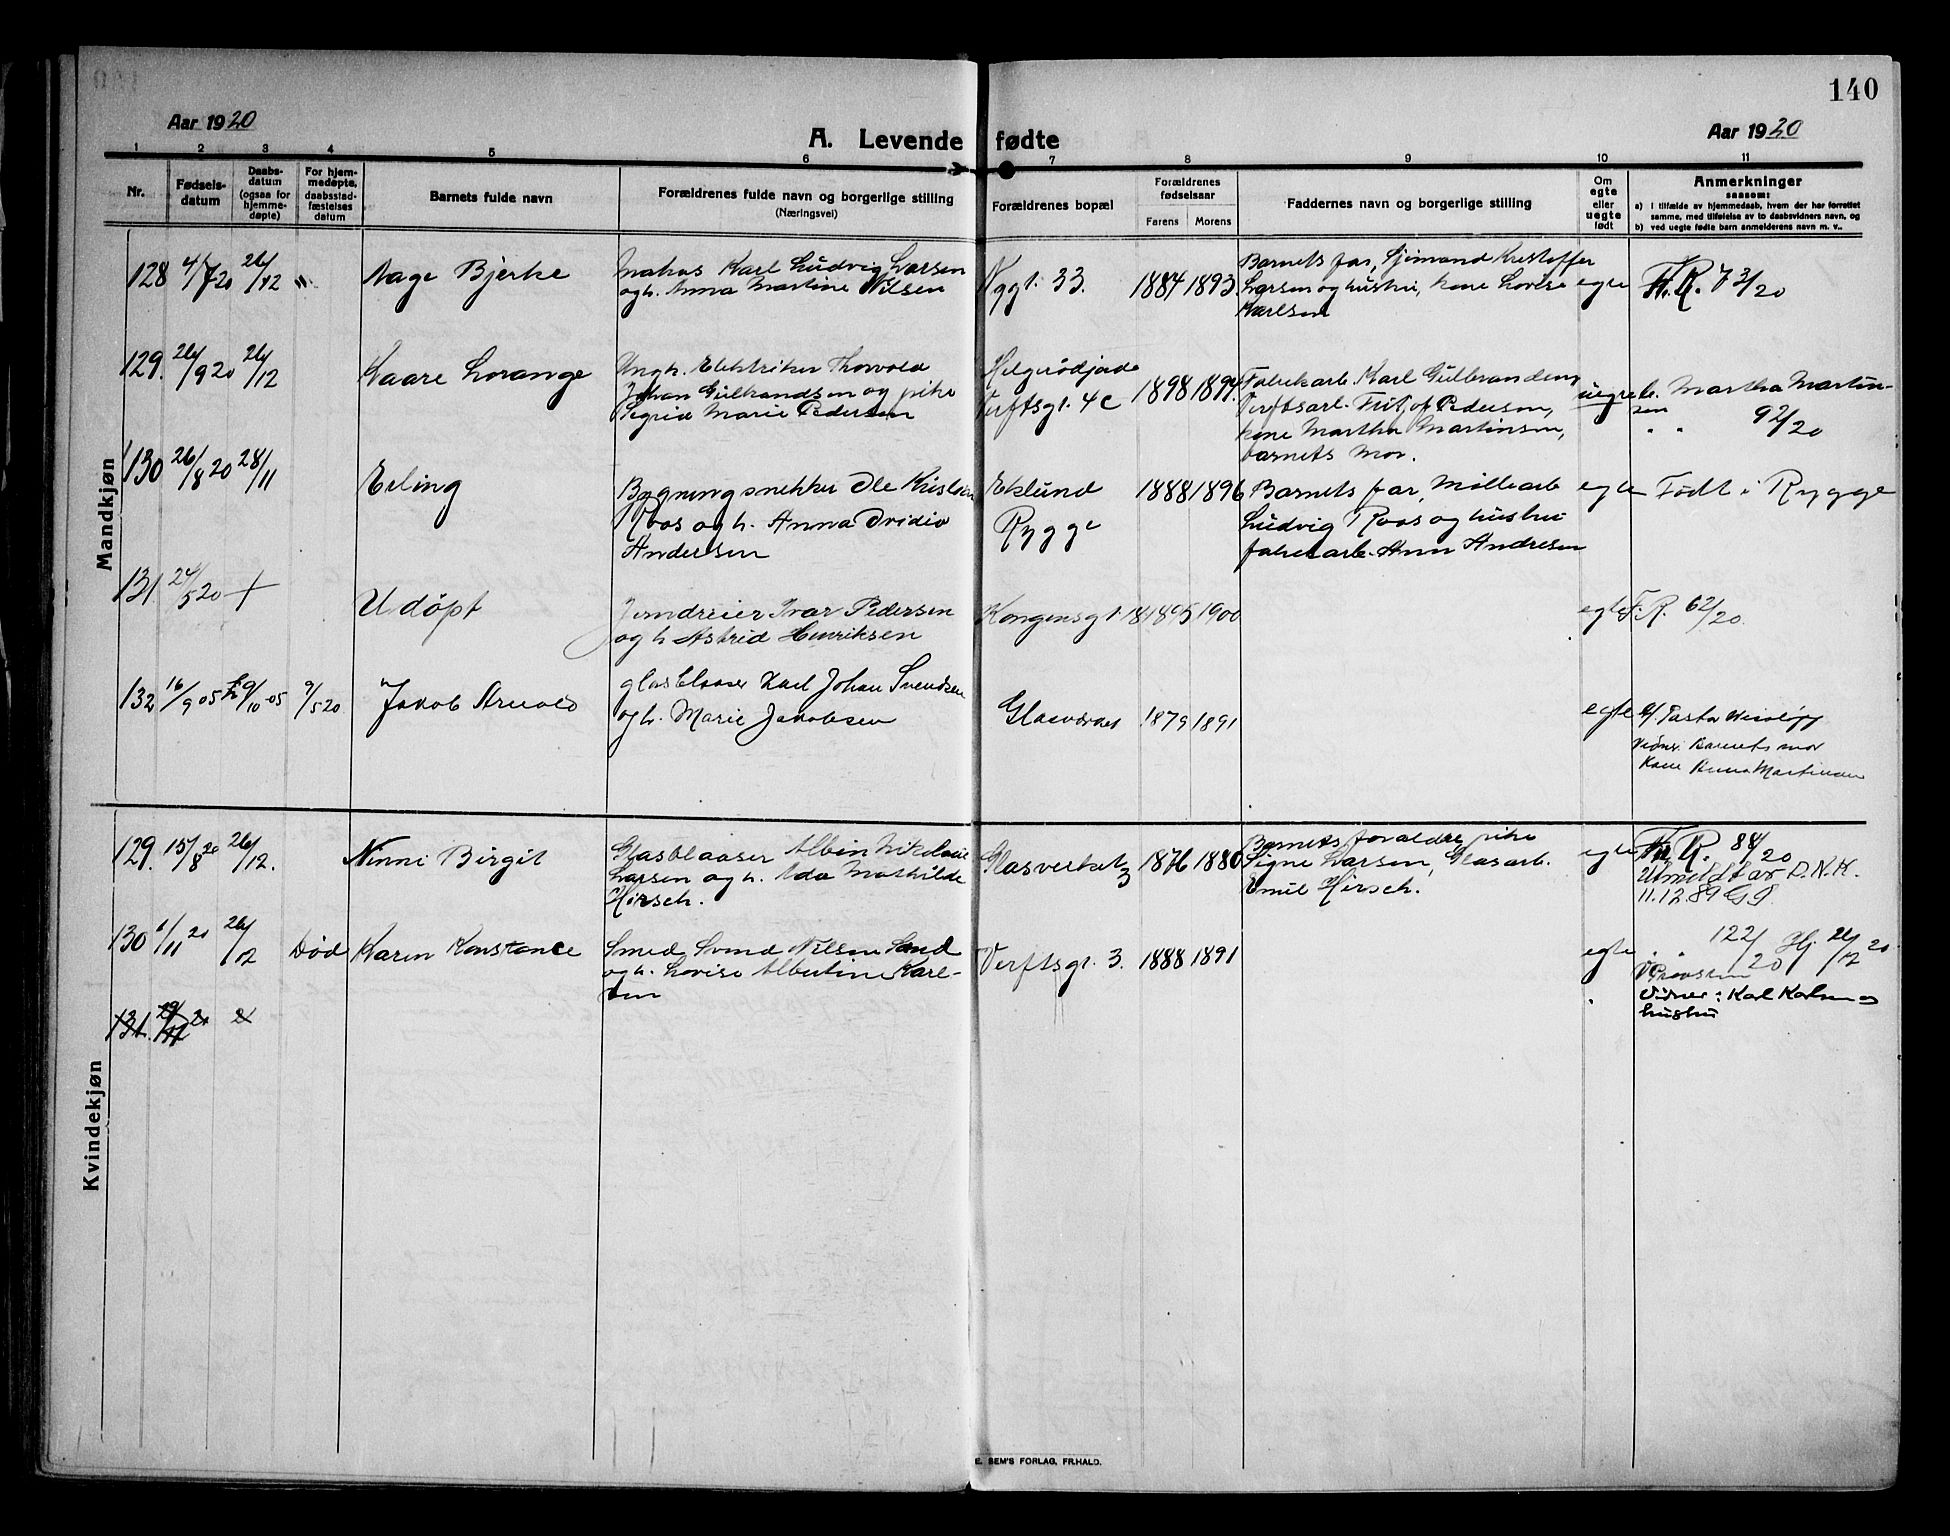 140
Aar 1920
A. Levende fødte
Aar 1920
1 2 3 4 5 6 7 8 9 10 11
Nr.
Fødsels-
datum
Daabs-
datum
(ogsaa for
hjemme-
døpte)
For hjem-
medøpte,
daabsstad-
fæstelses
datum
Barnets fulde navn
Forældrenes fulde navn og borgerlige stilling
(Næringsvei)
Forældrenes bopæl
Forældrenes
fødselsaar
Farens Morens
Faddernes navn og borgerlige stilling
Om
egte
eller
uegte
født
Anmerkninger
saasom:
a) i tilfælde av hjemmedaab, hvem der har forrettet
samme, med tilføielse av to daabsvidners navn, og
b) ved uegte fødte barn anmelderens navn m. v..
Mandkjøn
128 4/7 20 26/12
Aage Bjerke
Karl Ludvig Larsen
og h. Anna Martine Nilsen
33.
1884 1893
Barnets far, Sjømand Kristoffer
Larsen og hustru, kone Lovise
Karlsen
egte
F. R. 73/20
129. 26/9 20 26/12
Kaare Lorange
Ungk. Elektriker Thorvald
Johan Gulbrandsen og pike
Sigrid Marie Pedersen
Verftsgt. 4c
1898 1897.
Fabrikarb. Karl Gulbrandsen,
Verftsarb. Fritjof Pedersen,
kone Martha Martinsen,
barnets mor.
uegte
b. Martha Martin-
sen
" " 92/20
130 26/8 20 28/11
Erling
Bygningsnekker Ole Kristian
Roos og h. Anna Ovidia
Andersen
Eklund
Rygge
1888 1896
Barnets far, Møllearb
Ludvig Roos og hustru
fabrikarb. Ann Andresen
egte
Født i Rygge
131. 24/5 20 +
Udøpt
Jerndreier Ivar Pedersen
og h Astrid Henriksen
Kongensgt. 18 1895 1900
egte
F. R. 62/20.
132 16/9 05 9/10 05 9/5 20
Jakob Arnold
glasblaaser Karl Johan Svendsen
og h. Marie Jakobsen
Glasverket
1879 1891
egte
Vidner Barnets mor
Kone Anna Martinsen
Kvindekjøn
129. 15/8 20 26/12.
Ninni Birgit
Glasblaaser Albin Nikolai
Larsen og h. Ida Mathilde
Hirsch.
Glasverket 3
1876 1880
Barnets forældre, pike
Signe Larsen, Glasarb.
Emil Hirsch.
egte
F. R. 84/20
Utmeldt av D.N.K.
11.12.89 G.G.
130 1/11 20 26/12 Død
Karen Konstance
Smed Svend Nilsen Sand
og h. Lovise Albertine Karl-
sen
Verftsgt. 3.
1888 1891
egte
" " 122/20 Hj. 26/12 20
Vidner: Karl Karlsen og
hustru
131. 29/11 20
E. SEM'S FORLAG, FR.HALD.